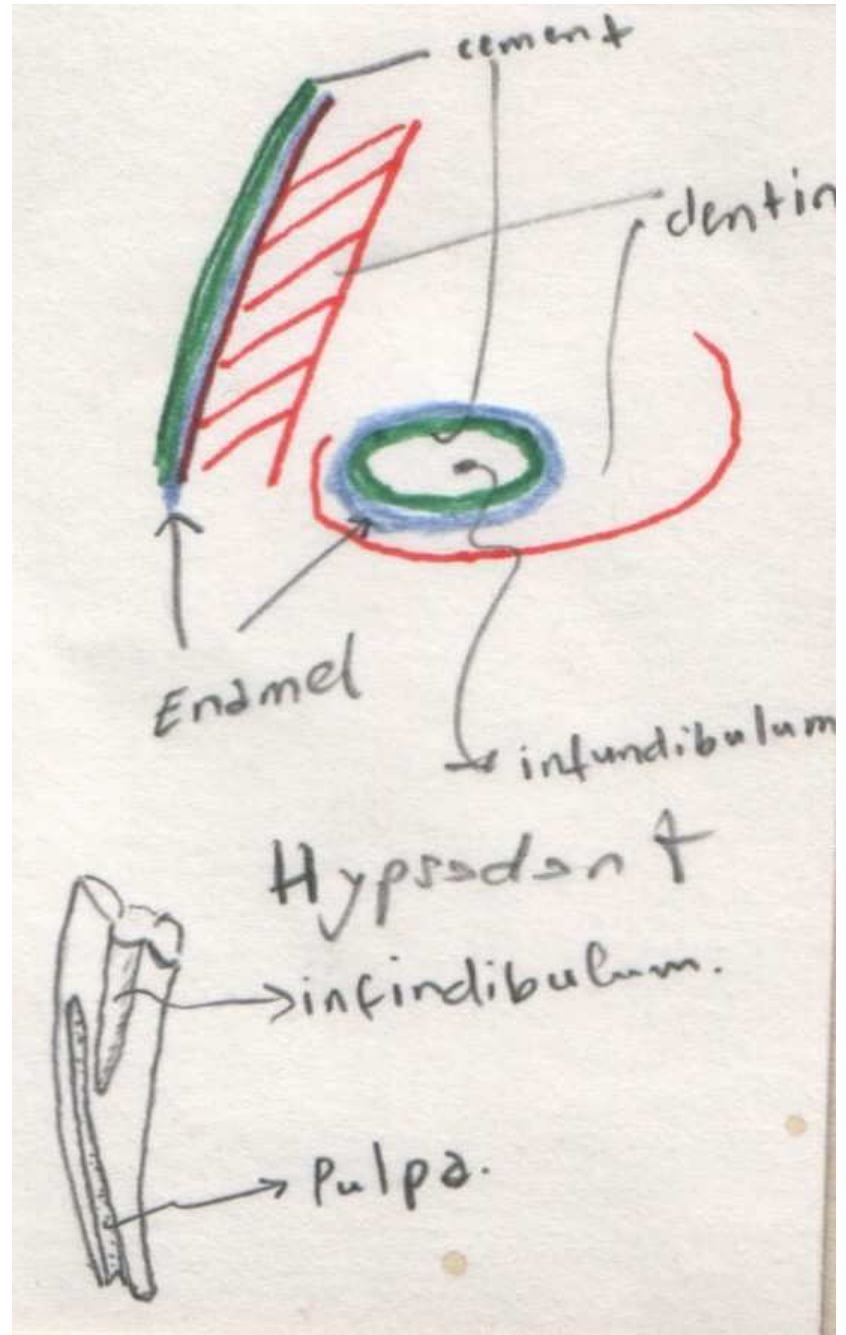 cement
dentin
Enamel
infundibulum
Hypsodont
infindibulum.
Pulpa.